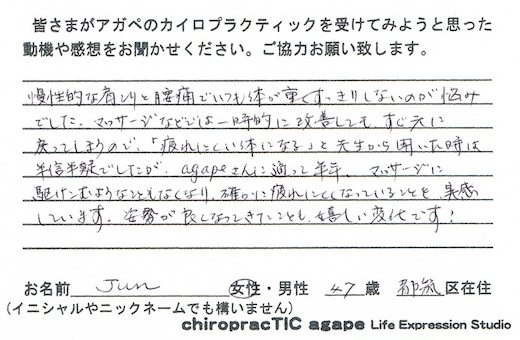 皆さまがアガペのカイロプラクティックを受けてみようと思った
動機や感想をお聞かせください。ご協力お願い致します。
慢性的な肩こりと腰痛でいつも体が重くすっきりしないのが悩み
でした。マッサージなどでは一時的に改善しても、すぐ元に
戻ってしまうので、「疲れにくい体になる」と先生から聞いた時は
半信半疑でしたが、agapeさんに通って半年、マッサージに
駆けこむようなこともなくなり、確かに疲れにくくなっていることを実感
しています。姿勢が良くなってきたことも、嬉しい変化です!
お名前 Jun 女性・男性 47 歳 都筑 区在住
(イニシャルやニックネームでも構いません)
chiropracTIC agape Life Expression Studio